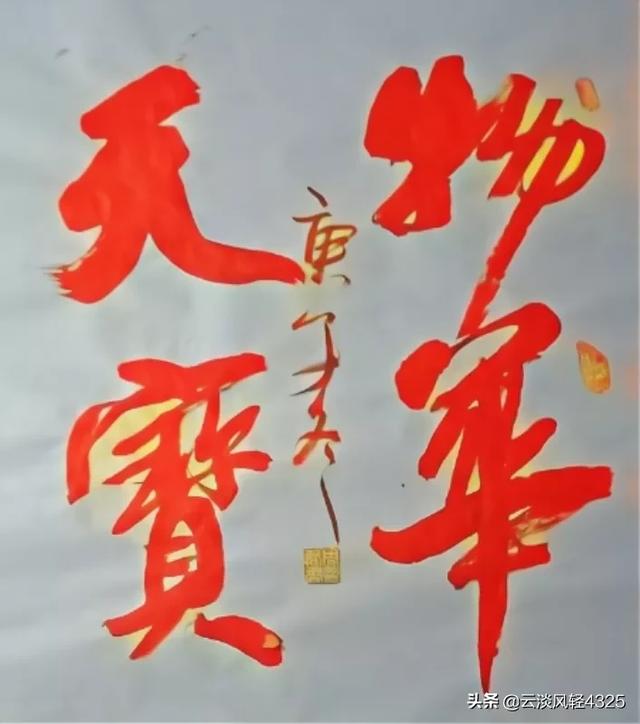 物華
天寶
庚子年冬
头条 @云淡风轻4325